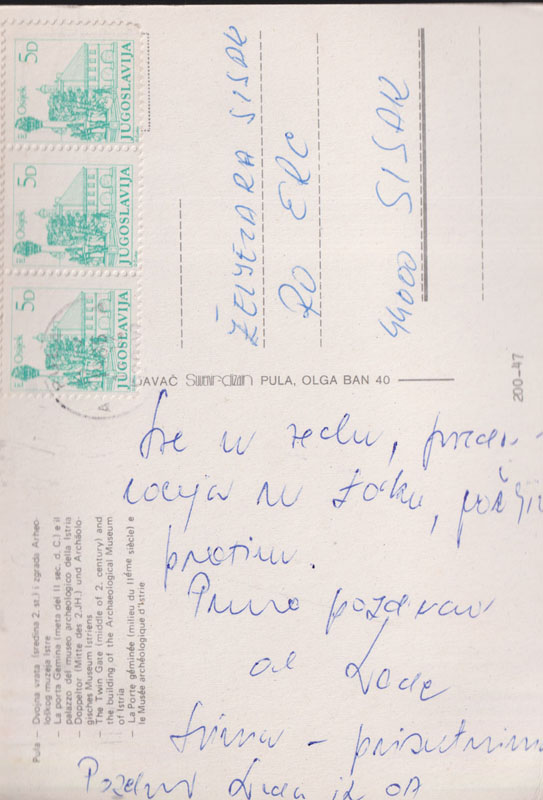 5D
Osijek
JUGOSLAVIJA
5D
Osijek
JUGOSLAVIJA
5D
Osijek
JUGOSLAVIJA
ŽELJEZARA SISAK
RO ERC
44000 SISAK
DAVAČ Suvenirdizajn PULA, OLGA BAN 40
200-47
Sve u redu,
u toku,
pratim.
Puno pozdrava
od Lade
Svima –
Pozdrav
Pula — Dvojna vrata (sredina 2. st.) i zgrada Arheo-
loškog muzeja Istre
— La porta Gemina (meta del II sec. d. C.) e il
palazzo del museo archeologico della Istria
— Doppeltor (Mitte des 2.JH.) und Archäolo-
gisches Museum Istriens
— The Twin Gate (middle of 2. century) and
the building of the Archaeological Museum
of Istria
— La Porte géminée (milieu du IIéme siècle) e
le Musée archéologique d'Istrie